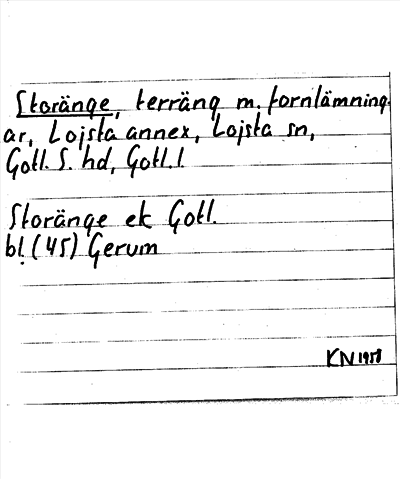 Storänge, terräng m. fornlämning-
ar, Lojsta annex, Lojsta sn,
Gotl. S. hd, Gotl. l.
Storänge ek Gotl.
bl. (45) Gerum
KN 1958